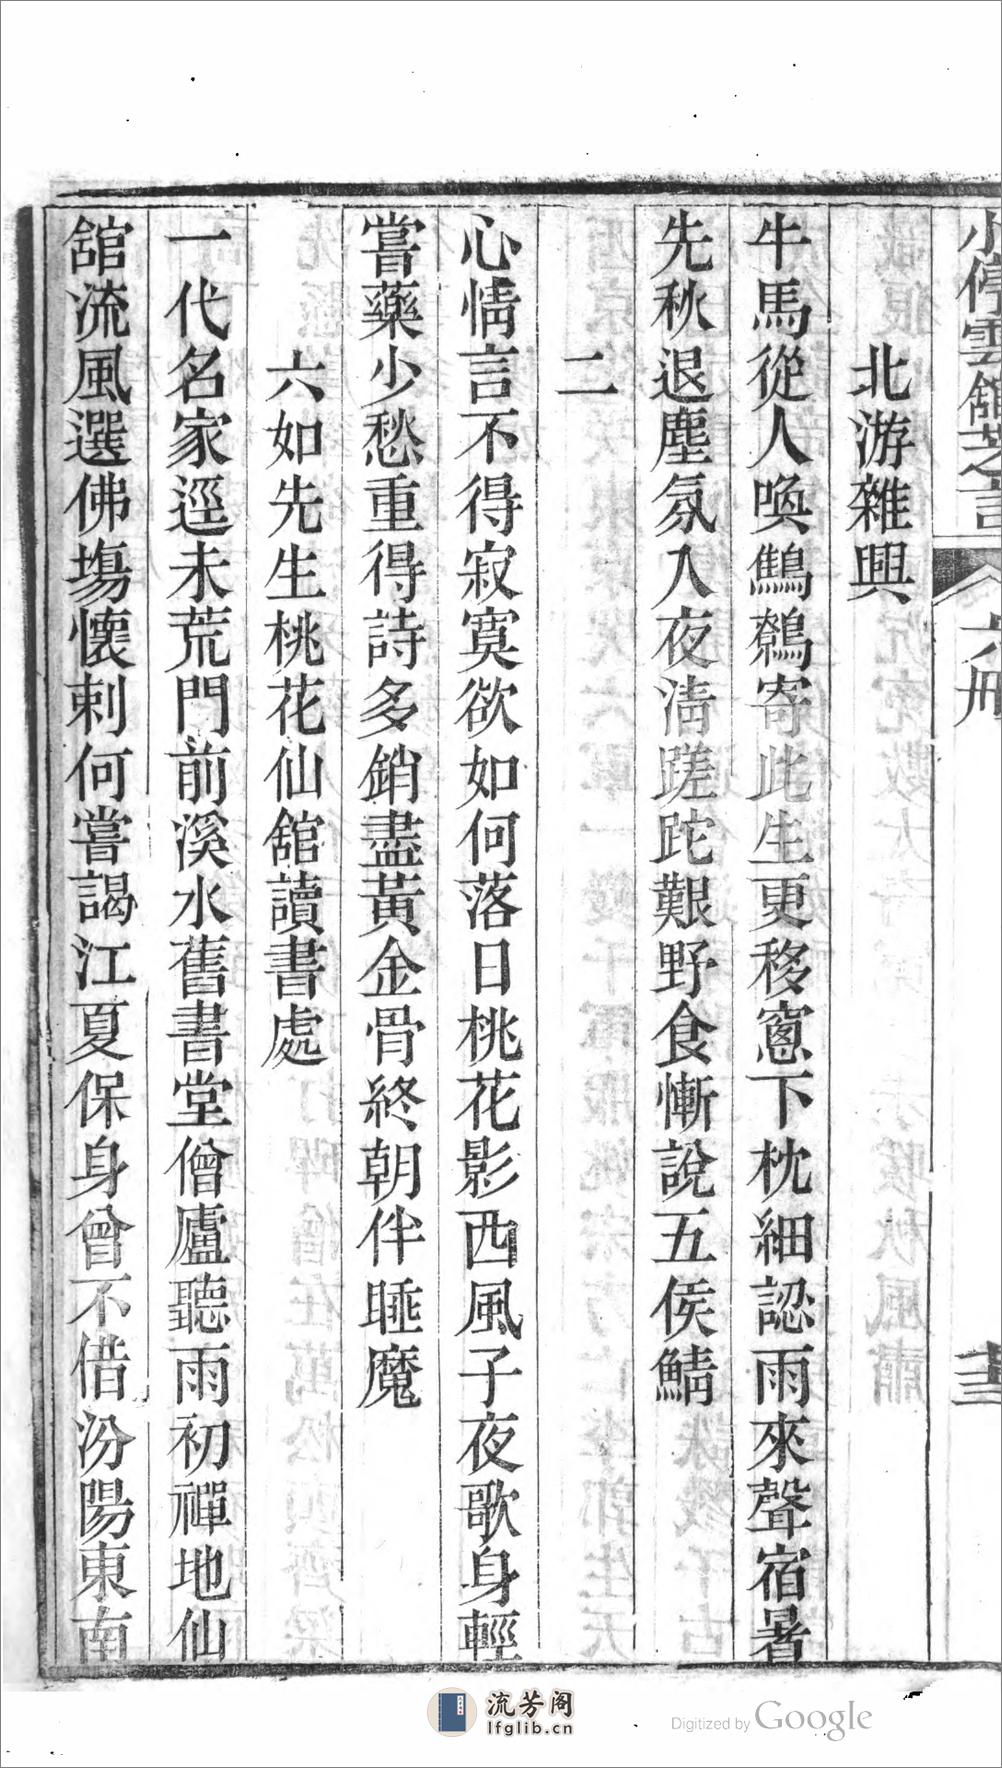 小停雲館芝言
六冊
北游雜興
牛馬從人喚鷦鷯寄此生更移窻下枕細認雨來聲宿暑
先秋退塵氛入夜淸蹉跎艱野食慚說五侯鯖
二
心情言不得寂寞欲如何落日桃花影西風子夜歌身輕
嘗藥少愁重得詩多銷盡黃金骨終朝伴睡魔
六如先生桃花仙舘讀書處
一代名家逕未荒門前溪水舊書堂僧廬聽雨初禪地仙
舘流風選佛塲懷剌何嘗謁江夏保身曾不借汾陽東南
流芳阁
lfglib.cn
Digitized by Google